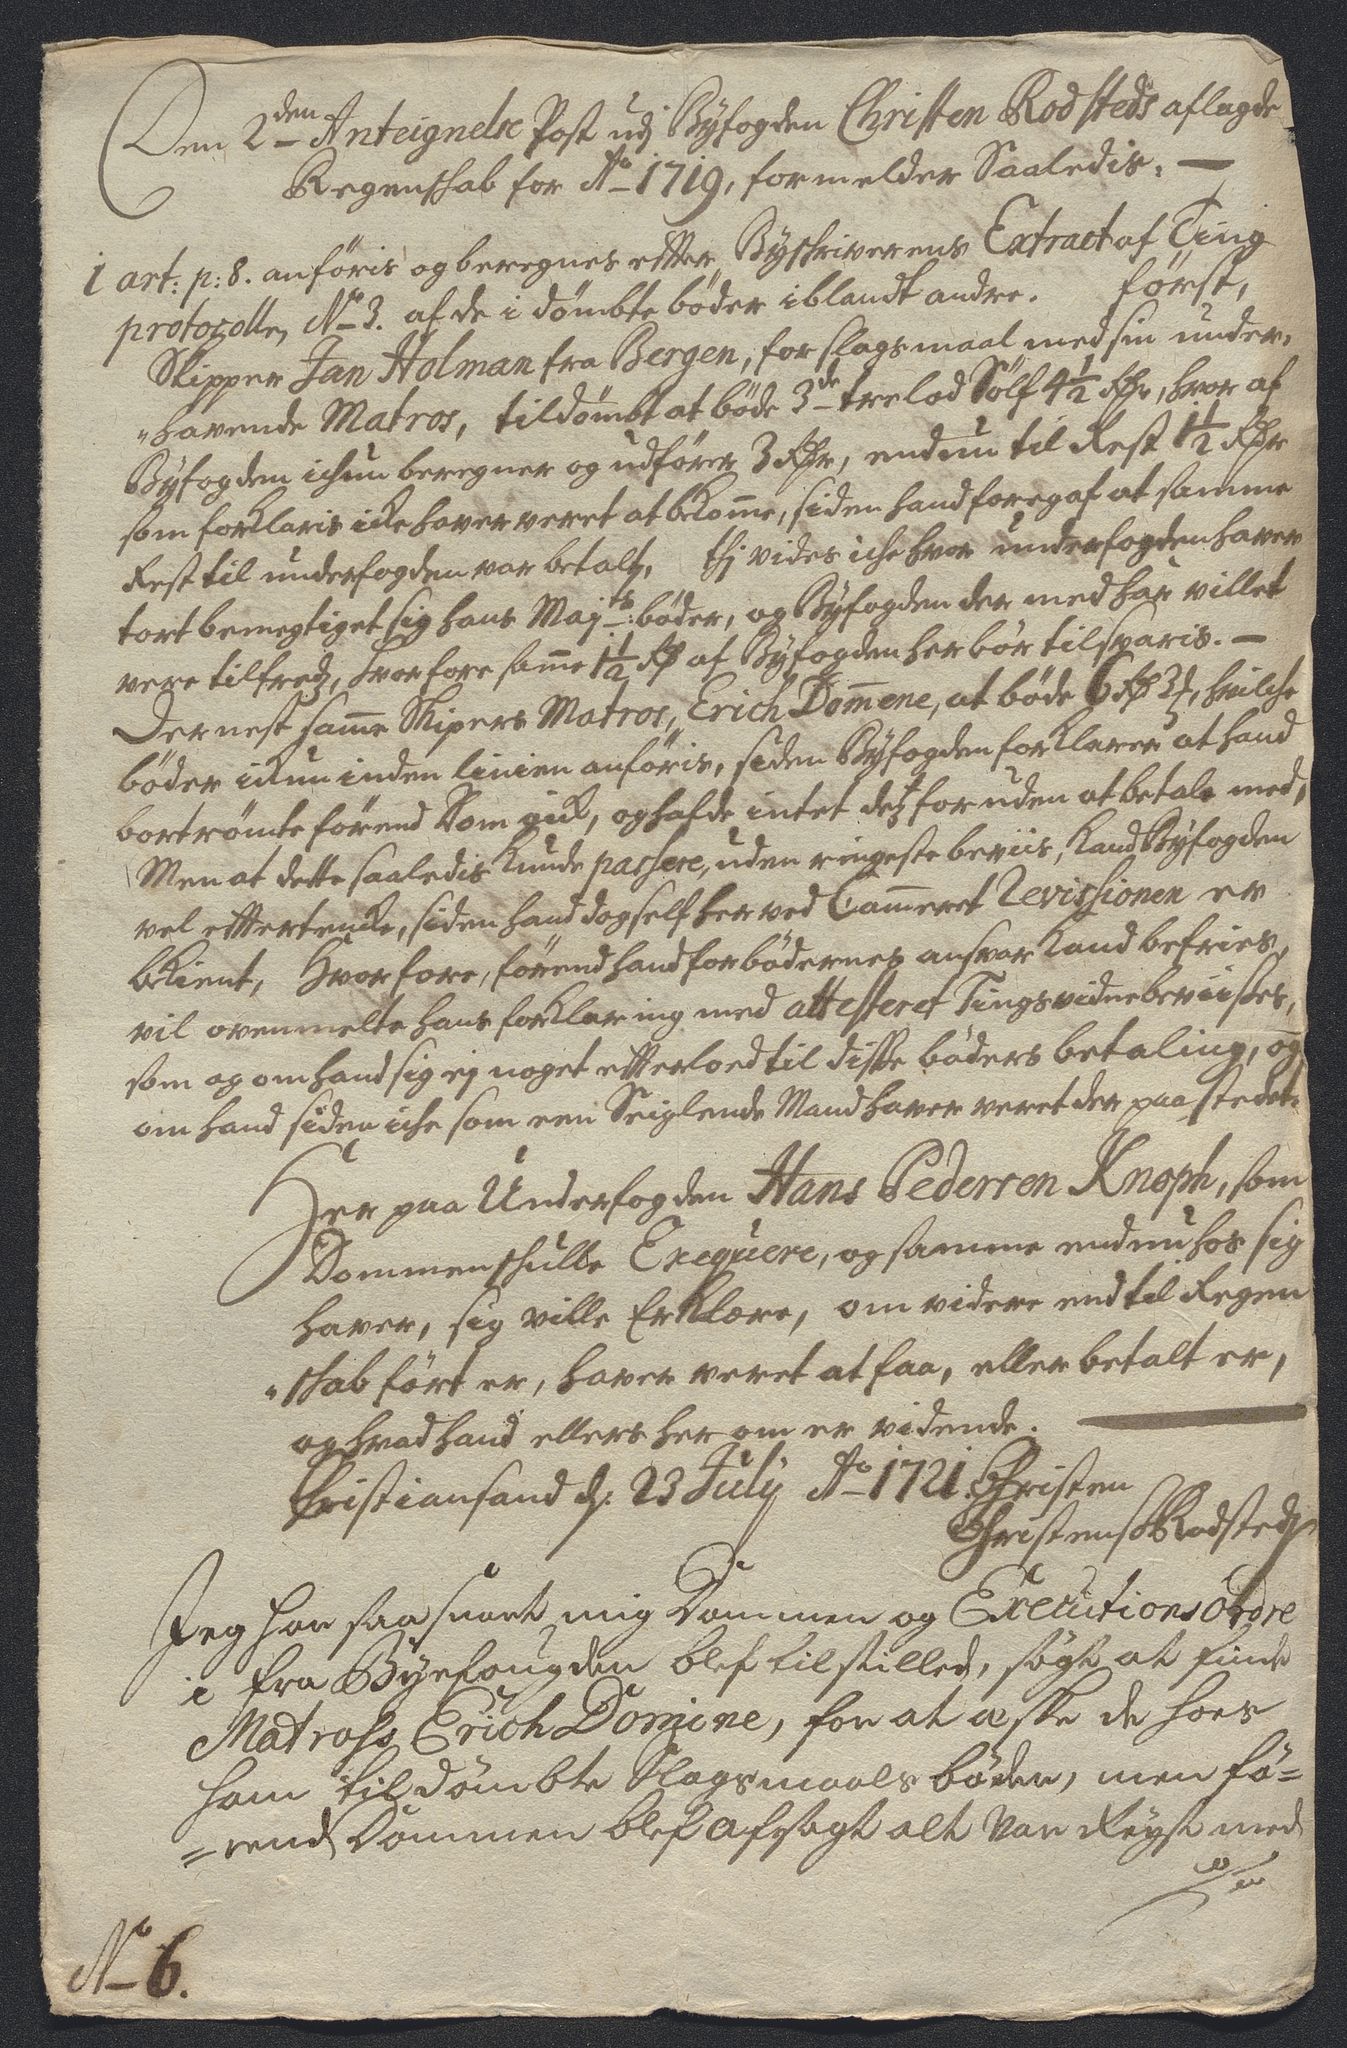 Den 2den Anteignelse Post udj Byfogden Christen Rodsteds aflagde
Regenskab for Ao 1719, formelder Saaledis.
1 art: p: 8. anföris og beregnes efter Byskriverens Extract af Ting
protocollen No 3. af de i dömbte böder iblandt andre. först,
Skipper Jan Holman fra Bergen, for slagsmaal med sin under-
havende Matros, tildömbt at böde 3de trelod Sölf 4½ Rdr, hvor af
Byfogden ichun beregner og udförer 3 Rdr, endnu til Rest 1½ Rdr
som forklaris icke haver veret at bekomme, siden hand foregaf at samme
Rest til underfogden var betalt, thj vides iche hvor underfogden haver
tort bemegtiget sig hans Majts böder, og Byfogden der med har villet
vere tilfreds, hvorfore samme 1½ Rd af Byfogden her bör tilsvaris.
Dernest samme Skipers Matros, Erich Dommene, at böde 6 Rd 3 , hvilche
böder ickun inden linien anföris, siden Byfogden forklarer at hand
bortrömte förend Dom gick, og hafde intet des foruden at betale med,
Men at dette saaledis kunde passere, uden ringeste beviis, kand Byfogden
vel eftertencke, siden hand dog self her ved Cammeret Revissionen er
bekient, hvorfore, förend hand for bödernes ansvar kand befries,
vil ovenmelte hans forklaring med attesteret Tingsvidne beviises,
som og om hand sig ej noget efterloed til disse böders betaling, og
om hand siden iche som een Seiglende Mand haver veret der paa stedet.
Her paa Underfogden Hans Pedersen Knoph, som
Dommen skulle Exequere, og samme endnu hos sig
haver, sig ville Erklære, om videre end til Regen
skab fört er, haver veret at faa, eller betalt er,
og hvad hand ellers her om er vidende.
Christiansand d: 23 July Ao 1721. Christen
Christens: Rodsted
Jeg har saa snart mig Dommen og Executions ordre
i fra Byefougden blef tilstilled, sögt at finde
Matrohs Erich Domine, for at æske de hoes
ham tildömbte Slagsmaals böder, men fö=
=rend Dommen blef afsagt alt var Reyst med
No 6.